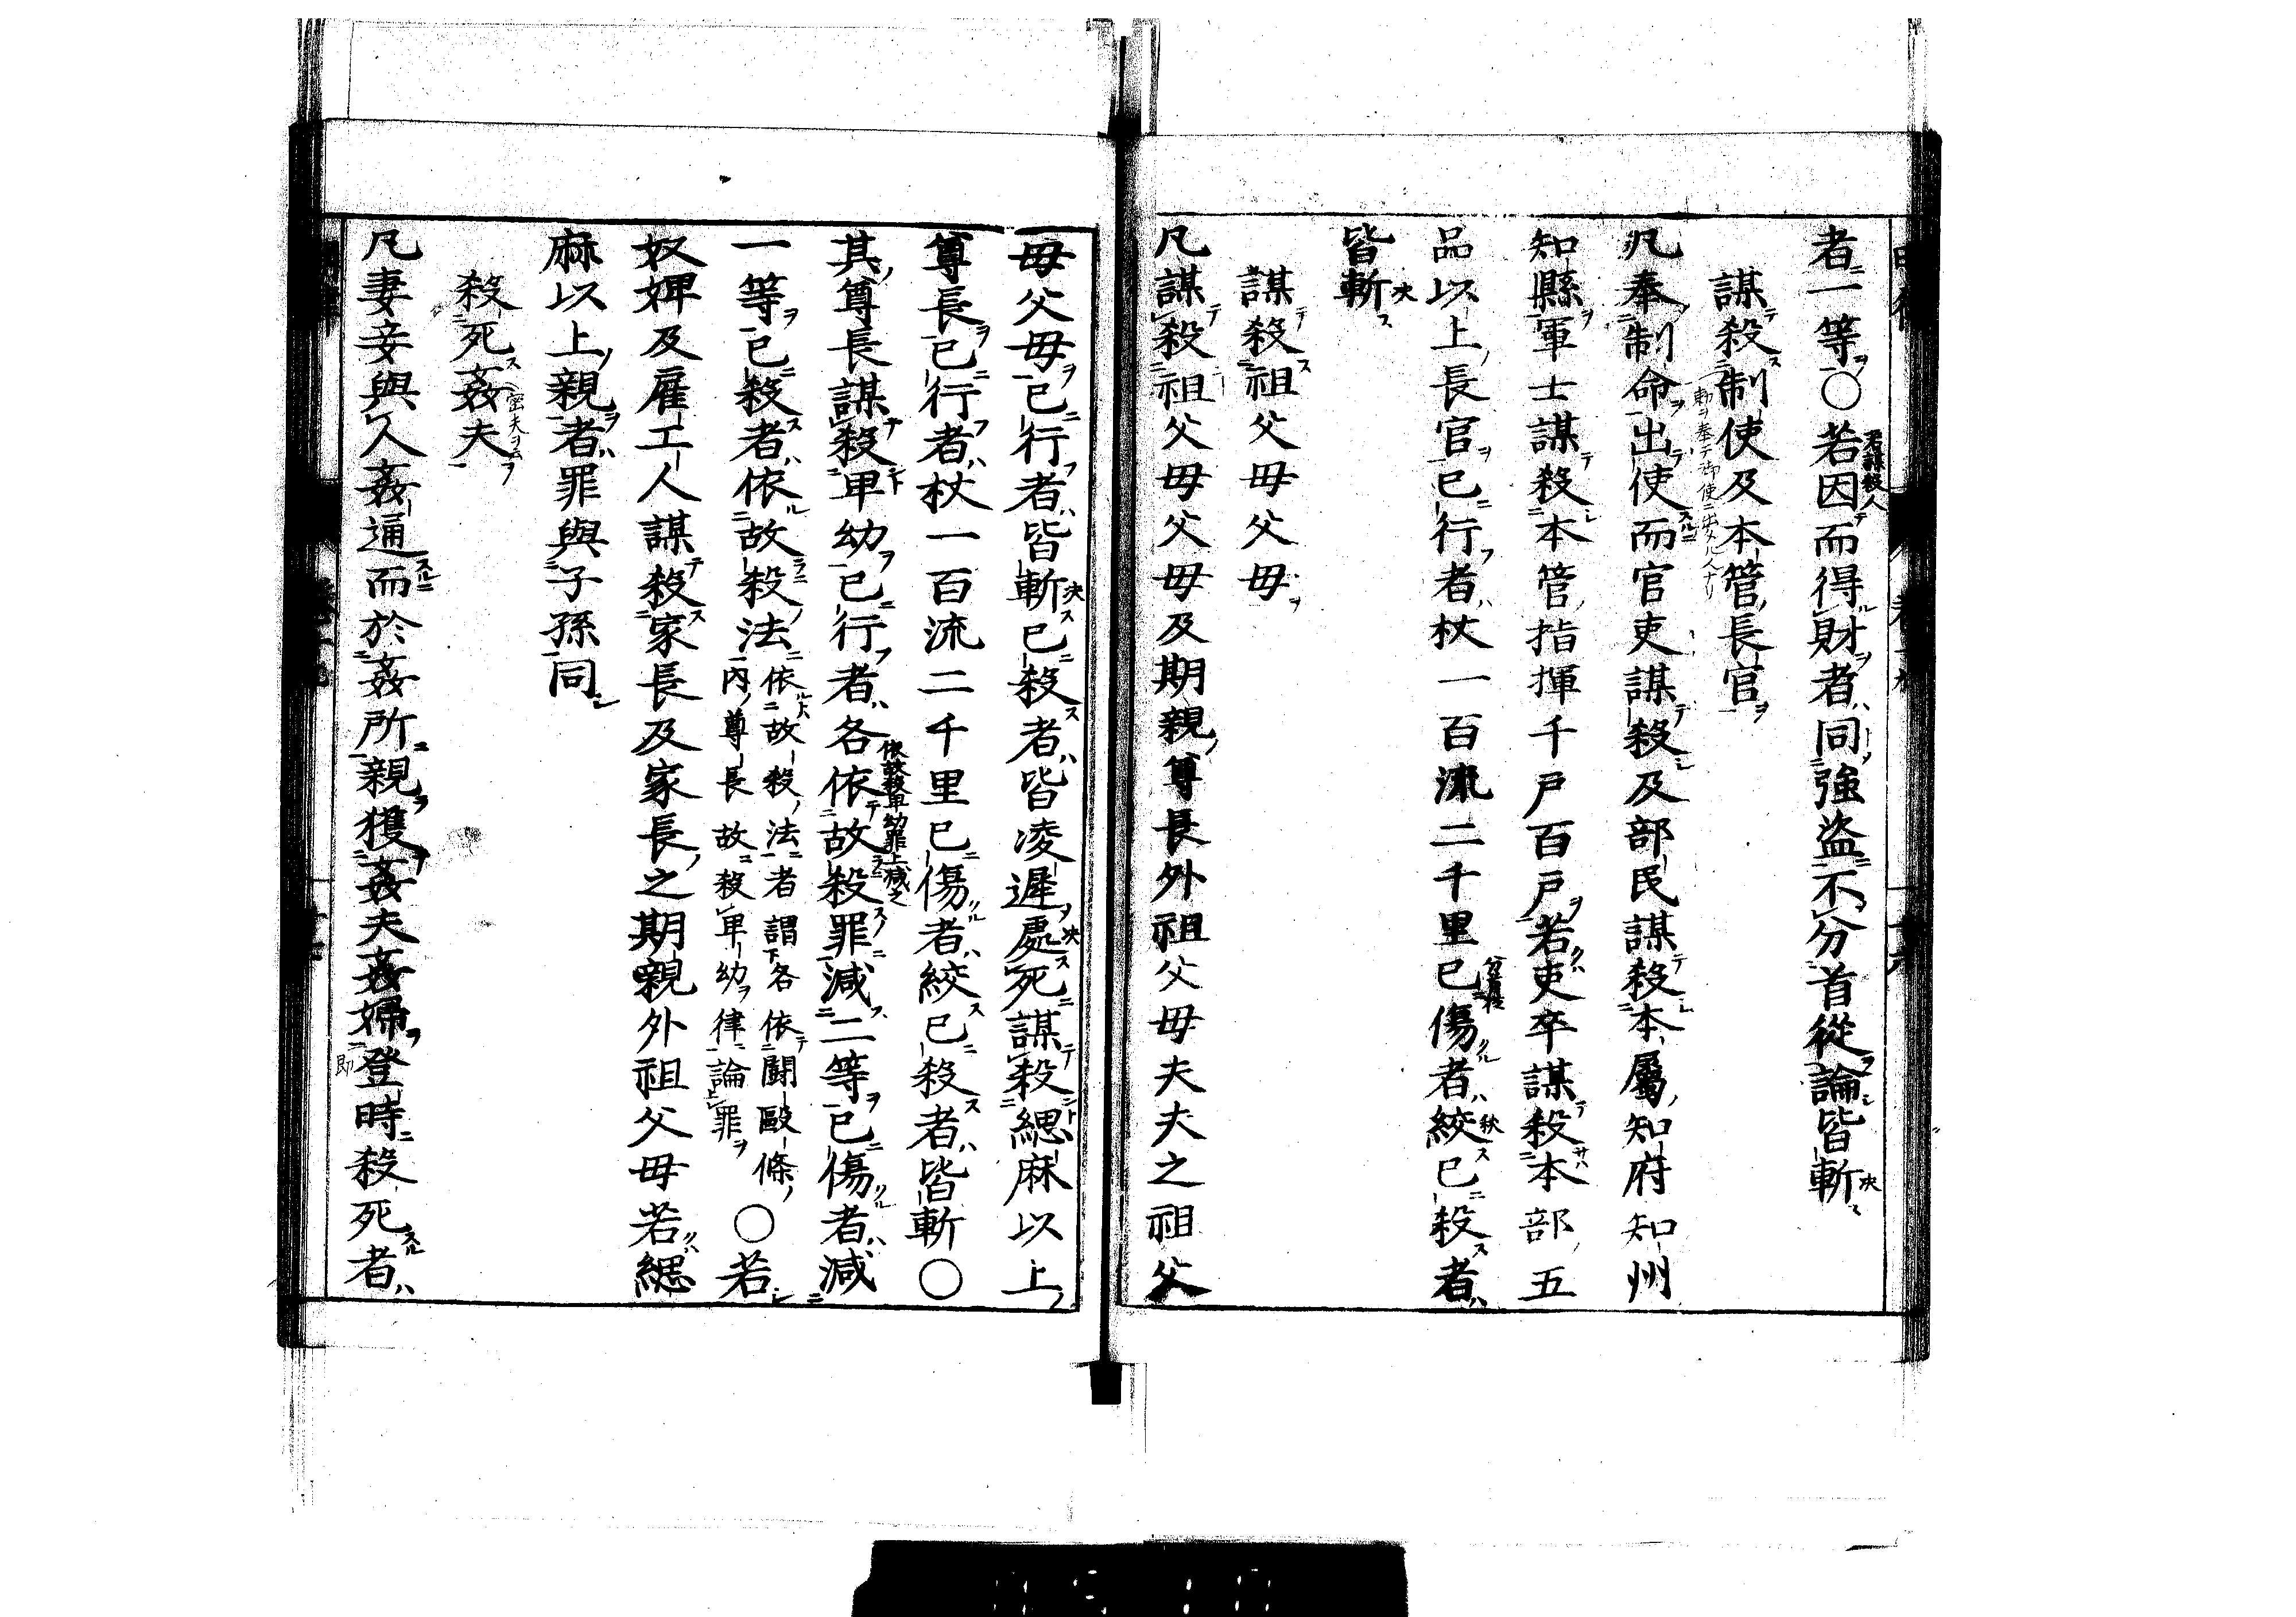 者一等○若因而得財者同強盜不分首從論皆斬
若謀殺人
決
謀殺制使及本管長官
勅ヲ奉テ御使ニ出タル人ナリ
凡奉制命出使而官吏謀殺及部民謀殺本屬知府知州
知縣軍士謀殺本管指揮千戶百戶若吏卒謀殺本部五
品以上長官已行者杖一百流二千里已傷者絞已殺者
秋
皆斬
決
謀殺祖父母父母
凡謀殺祖父母父母及期親尊長外祖父母夫夫之祖父
母父母已行者皆斬已殺者皆凌遲處死謀殺緦麻以上
決
決
尊長已行者杖一百流二千里已傷者絞已殺者皆斬○
其尊長謀殺卑幼已行者各依故殺罪減二等已傷者減
依故殺卑幼罪上減之
一等已殺者依故殺法
依故殺法者謂各依鬪毆條
內尊長故殺卑幼律論罪
○若
奴婢及雇工人謀殺家長及家長之期親外祖父母若緦
麻以上親者罪與子孫同
殺死姦夫
凡妻妾與人姦通而於姦所親獲姦夫姦婦登時殺死者
即